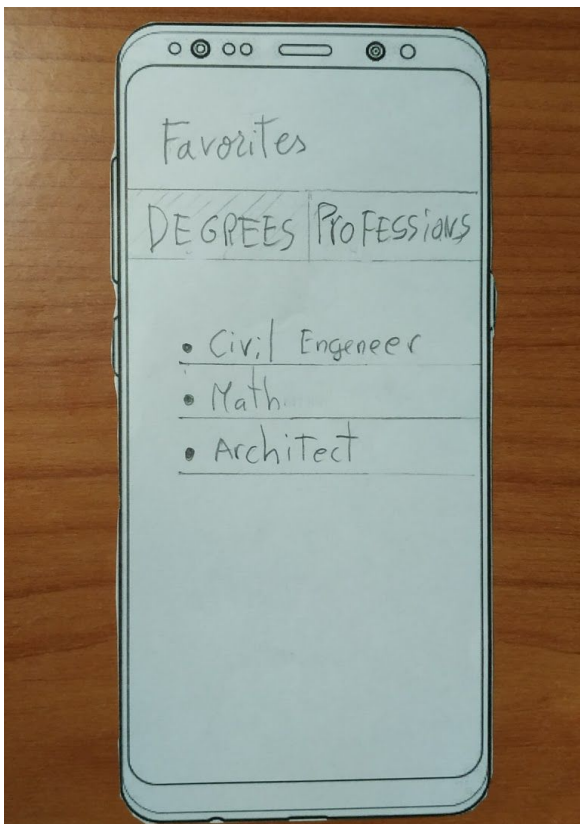 Favorites
DEGREES PROFESSIONS
• Civil Engeneer
• Math
• Architect